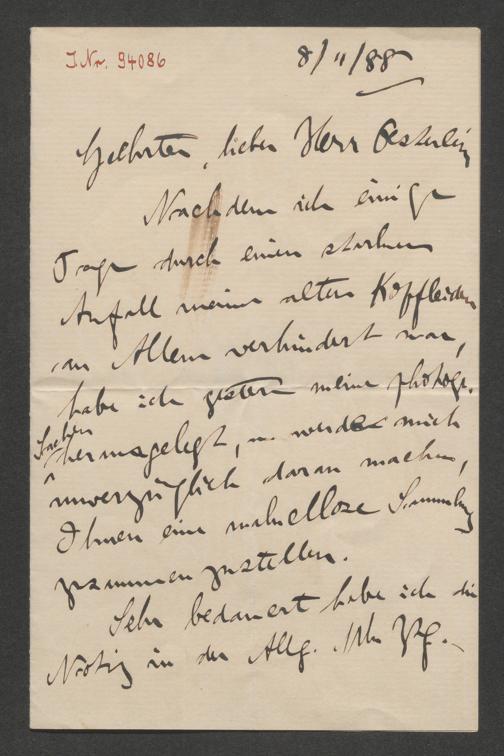 I.Nr. 94086
8/11/88
Geehrter, lieber Herr Oesterlein
Nachdem ich einige
Tage durch einen starken
Anfall meines alten Kopfleidens
an Allem verhindert war,
habe ich gestern meine photogr.
Sachen
herausgelegt, u. werde mich
unverzüglich daran machen,
Ihnen eine makellose Sammlung
zusammen zustellen.
Sehr bedauert habe ich die
Notiz in der Allg. Mk Ztg. –